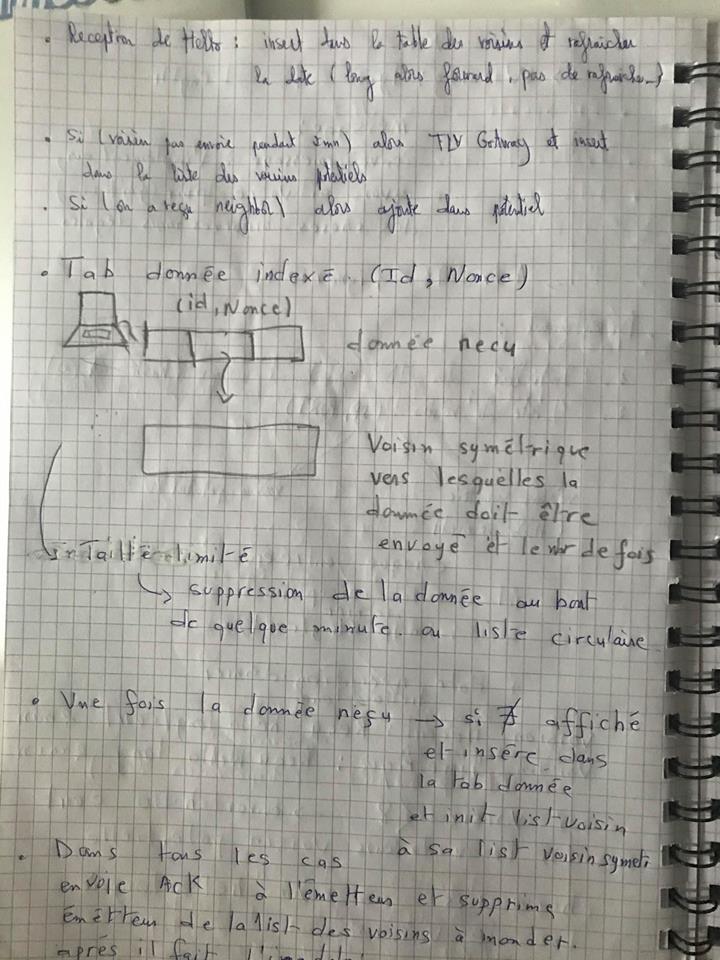 . Reception de Hello : insert dans la table des voisins et rafraichir
la date (long alors forward, pas de rafraiche..)
. Si (voisin pas envoie pendant 2mn) alors TLV GoAway et insert
dans la liste des voisins potetiels
. Si (on a reçu neighbor) alors ajoute dans potentiel
. Tab donnée indexé. (Id, Nonce)
(id, Nonce)
donnée reçu
Voisin symétrique
vers lesquelles la
donnée doit être
envoyé et le nbr de fois
Taille limité
↳ suppression de la donnée au bout
de quelque minute. ou liste circulaire
. Une fois la donnée reçu → si ∄ affiché
et insère dans
la tab donnée
et init list voisin
à sa list voisin symetr
. Dans tous les cas
envoie Ack à l'émetteur et supprime
émetteur de la list des voisins à inonder.
après il fait